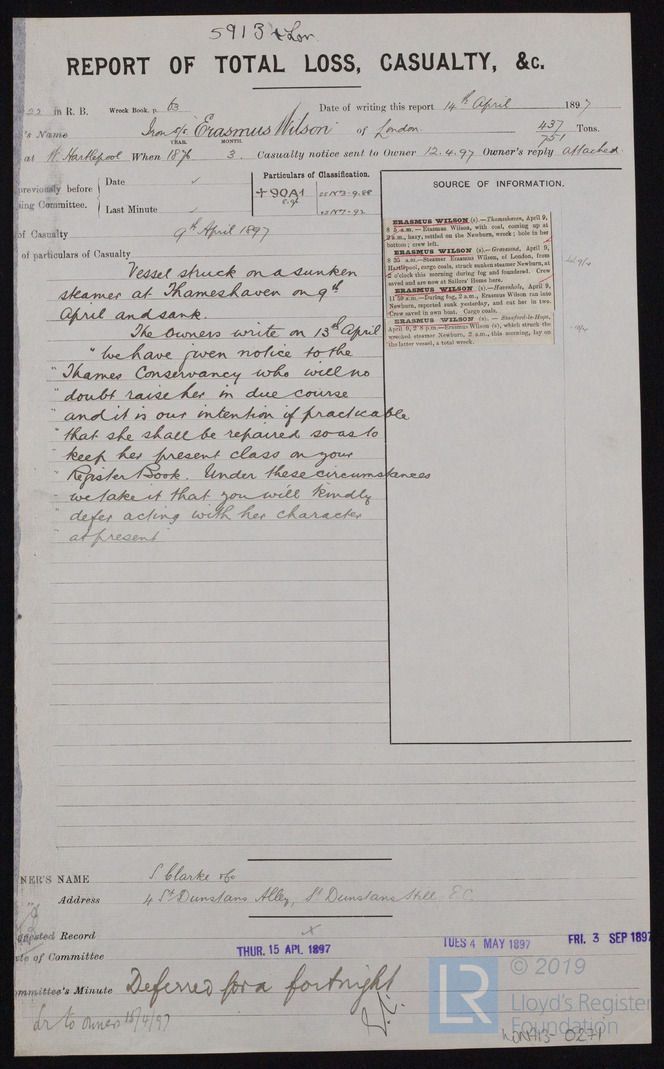 5913 & Lon
REPORT OF TOTAL LOSS, CASUALTY, &c.
22 in R. B. Wreck Book, p. 63 Date of writing this report 14th April 1897
's Name Iron s/s. "Erasmus Wilson" of London. 437/751 Tons.
at W. Hartlepool When YEAR. 1876 MONTH. 3. Casualty notice sent to Owner 12.4.97 Owner's reply attached.
previously before
ing Committee.
Date ✓
Last Minute ✓
Particulars of Classification.
+90A1
SOURCE OF INFORMATION.
of Casualty 9th April 1897
of particulars of Casualty
Vessel struck on a sunken
steamer at Thameshaven on 9th
April and sank.
The Owners write on 13th April
"We have given notice to the
"Thames Conservancy who will no
"doubt raise her in due course
"and it is our intention if practicable
"that she shall be repaired so as to
"keep her present class in your
"Register Book. Under these circumstances
"we take it that you will kindly
"defer acting with her character
"at present
ERASMUS WILSON (s).—Thameshaven, April 9,
8 5 a.m.—Erasmus Wilson, with coal, coming up at
2 a.m., hazy, settled on the Newburn, wreck; hole in her
bottom; crew left.
ERASMUS WILSON (s).—Gravesend, April 9,
8 35 a.m.—Steamer Erasmus Wilson, of London, from
Hartlepool, cargo coals, struck sunken steamer Newburn, at
2 o'clock this morning during fog and foundered. Crew
saved and are now at Sailors' Home here.
ERASMUS WILSON (s).—Havenhole, April 9,
11 59 a.m.—During fog, 2 a.m., Erasmus Wilson ran into
Newburn, reported sunk yesterday, and cut her in two.
Crew saved in own boat. Cargo coals.
ERASMUS WILSON (s).—Stanford-le-Hope,
April 9, 2 8 p.m.—Erasmus Wilson (s), which struck the
wrecked steamer Newburn, 2 a.m., this morning, lay on
the latter vessel, a total wreck.
NER'S NAME S. Clarke & Co
Address 4 St Dunstans Alley, St Dunstans Hill, E.C.
Record x
te of Committee THUR. 15 APL 1897 TUES 4 MAY 1897 FRI. 3 SEP 1897
ommittee's Minute Deferred for a fortnight
Lr to owners 15/4/97
LR
© 2019
Lloyd's Register
Foundation
LON713-0271